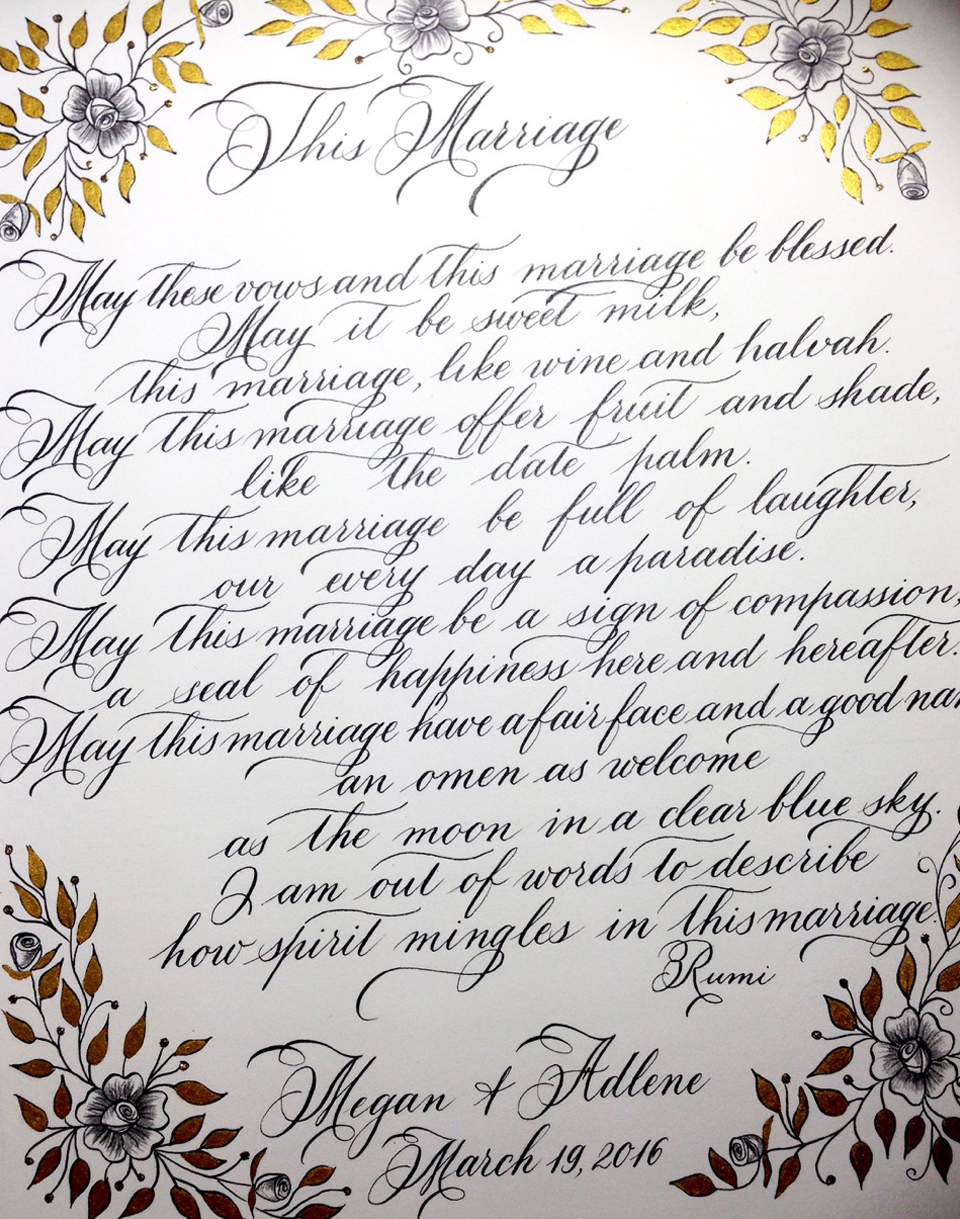 This Marriage
May these vows and this marriage be blessed.
May it be sweet milk,
this marriage, like wine and halvah.
May this marriage offer fruit and shade,
like the date palm.
May this marriage be full of laughter,
our every day a paradise.
May this marriage be a sign of compassion,
a seal of happiness here and hereafter.
May this marriage have a fair face and a good
an omen as welcome
as the moon in a clear blue sky.
I am out of words to describe
how spirit mingles in this marriage.
Rumi
Megan & Adlene
March 19, 2016